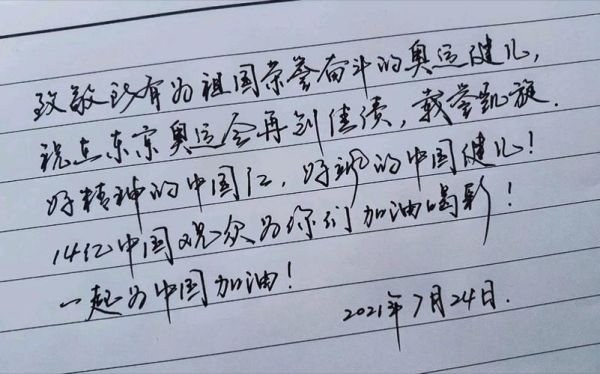 致敬所有为祖国荣誉奋斗的奥运健儿,
祝在东京奥运会再创佳绩,载誉凯旋.
好精神的中国红,好飒的中国健儿!
14亿中国观众为你们加油喝彩!
一起为中国加油!
2021年7月24日.